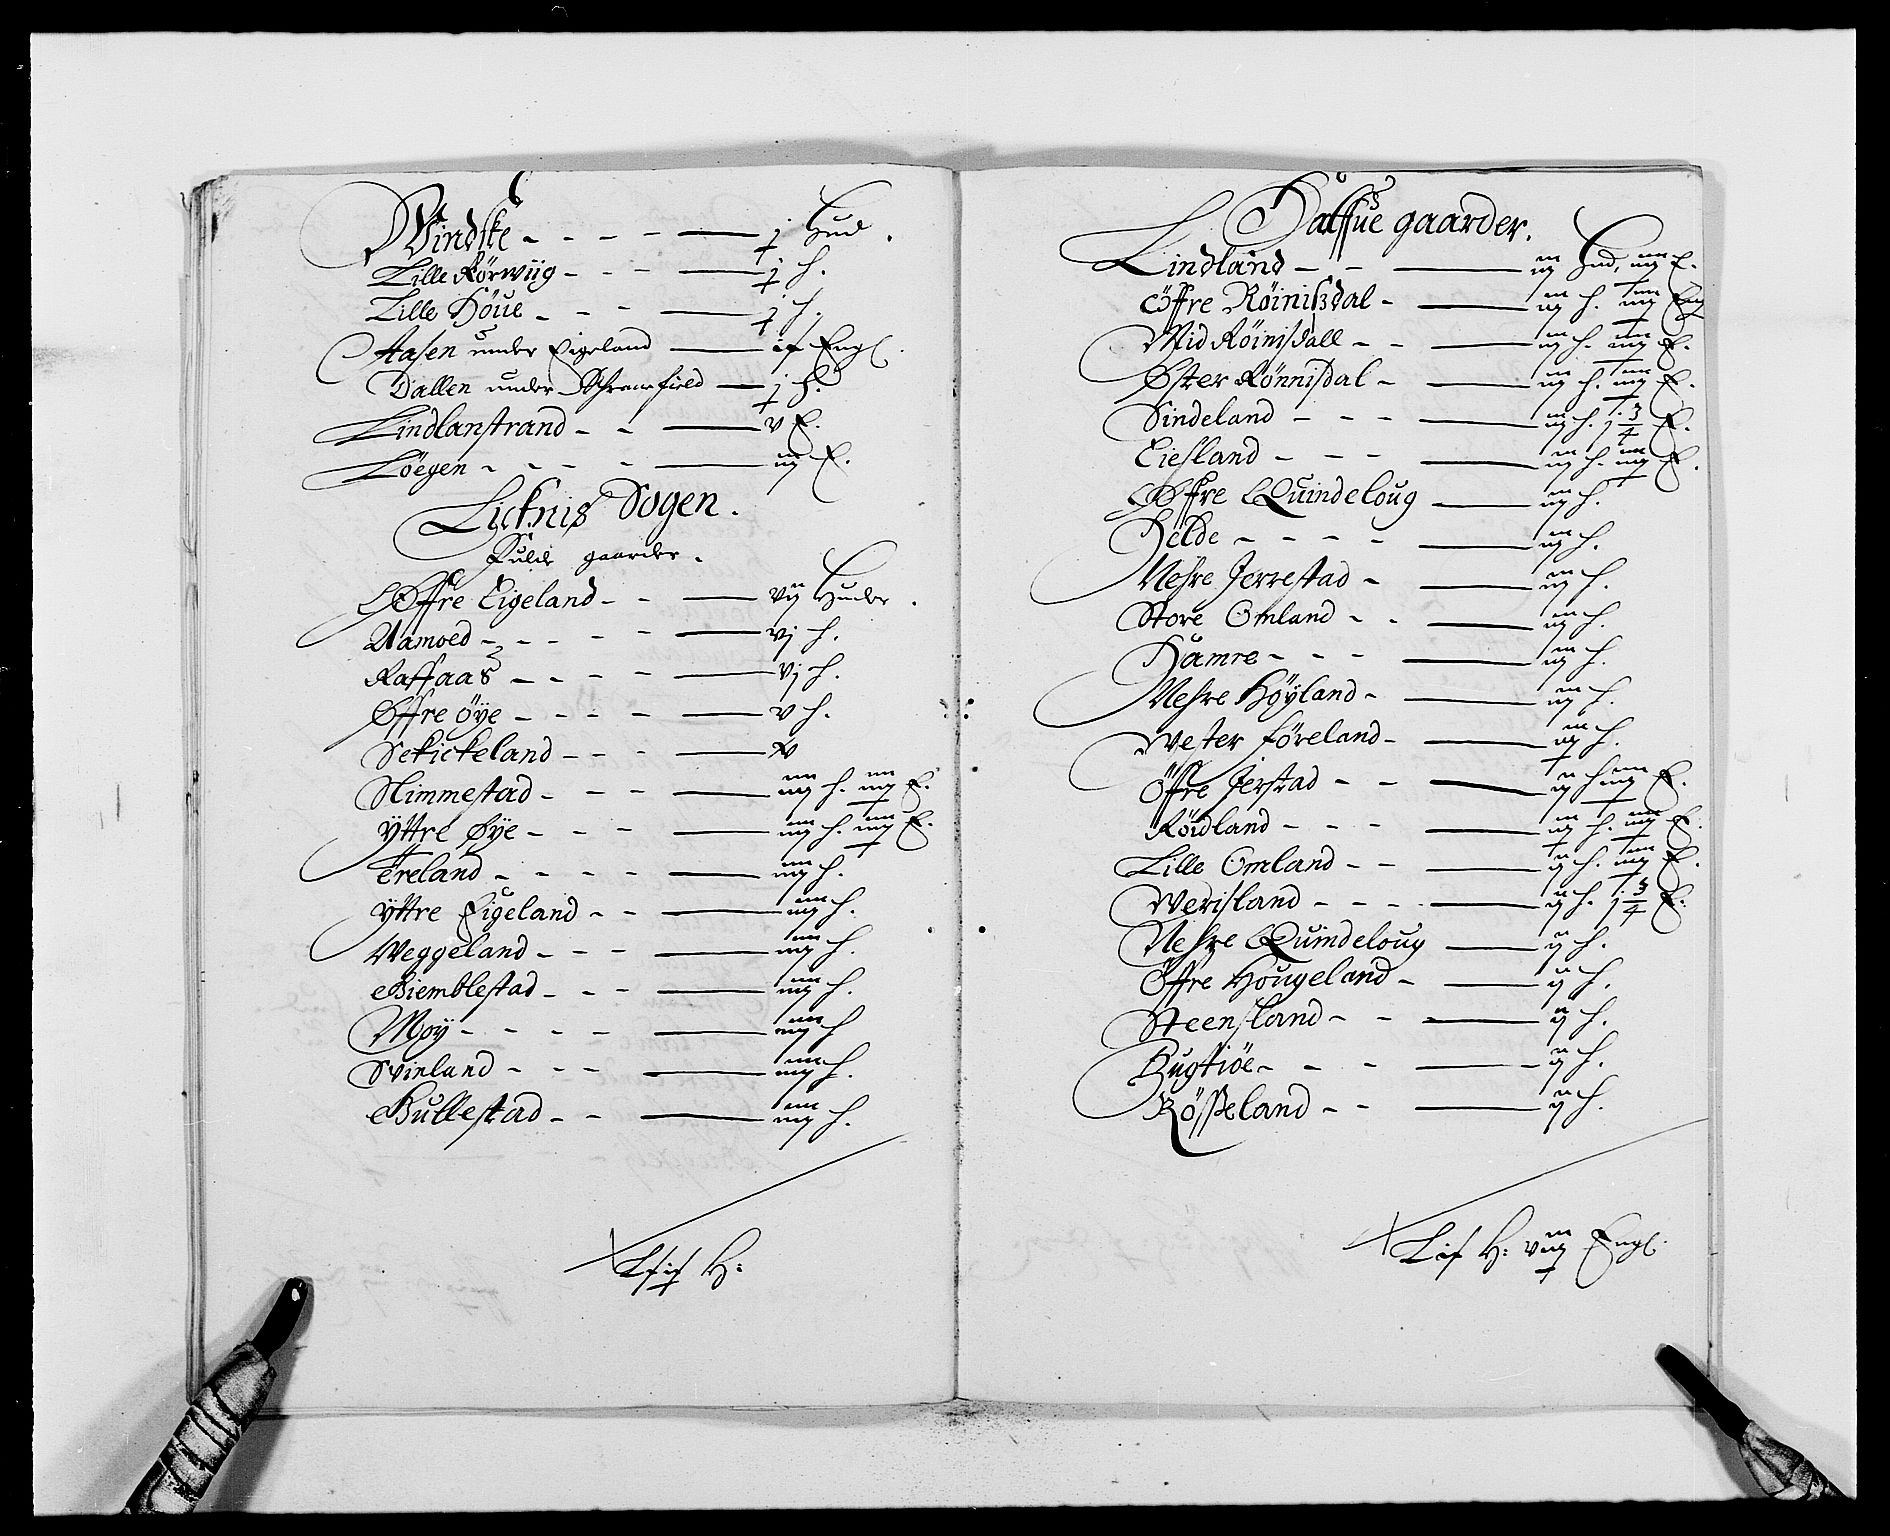 Windske - - - - j Hud.
Lille Rörwiig - - - j h.
Lille Höue - - - j h.
Aasen under Eigeland if Engl.
Dallen under j h.
Lindlanstrand - - v E.
Löegen - - - - iij E.
Lucknis Sogen.
Fulde gaarder.
Øffre Eigeland - - vij Huder.
Aamoed - - - - - vj h.
Raffaas - - - - vj h.
Øffre öÿe - - - - v h.
Sekickeland - - - v
Nimmestad - - - - iiij h. iiij E.
Yttre Øÿe - - - - iiij h. iiij E.
Treland - - - - iiij h.
Yttre Eigeland - - iiij h.
Weggeland - - - iiij h.
Giemblestad - - - iiij h.
Moÿ - - - - iiij h
Svinland - - - iiij h.
Gullestad - - iiij h.
Lfif H:
Halffue gaarder.
Lindland - - iij Hud, iiij E.
Øffre Röinisdal - iij h. iiij Eng
Mid Röinisdall - - iij h. iiij E.
Øster Rönnisdal - iij h. iiij E.
Sindeland - - - iij h. 1 3/4 E.
Eiesland - - - iij h. iiij E.
Øffre Quindeloug iij h.
Helde - - - - iij h.
Nehre Jerrestad - iij h.
Store Omland - - iij h.
Hamre - - - iij h.
Nehre Höÿland - iij h.
Wester föreland - iij h.
Öffre Jerstad - - ij h iiij E.
Röidland - - - iij h. iiij E.
Lille Omland - - ij h. iiij E.
Werisland - - - - ij h. 1 3/4 E.
Nehre Quindeloug ij h.
Öffre Hougeland - ij h.
Steensland - - ij h.
Bugtiöe - - - ij h.
Rösseland - - ij h.
Lif H: viij Engl.